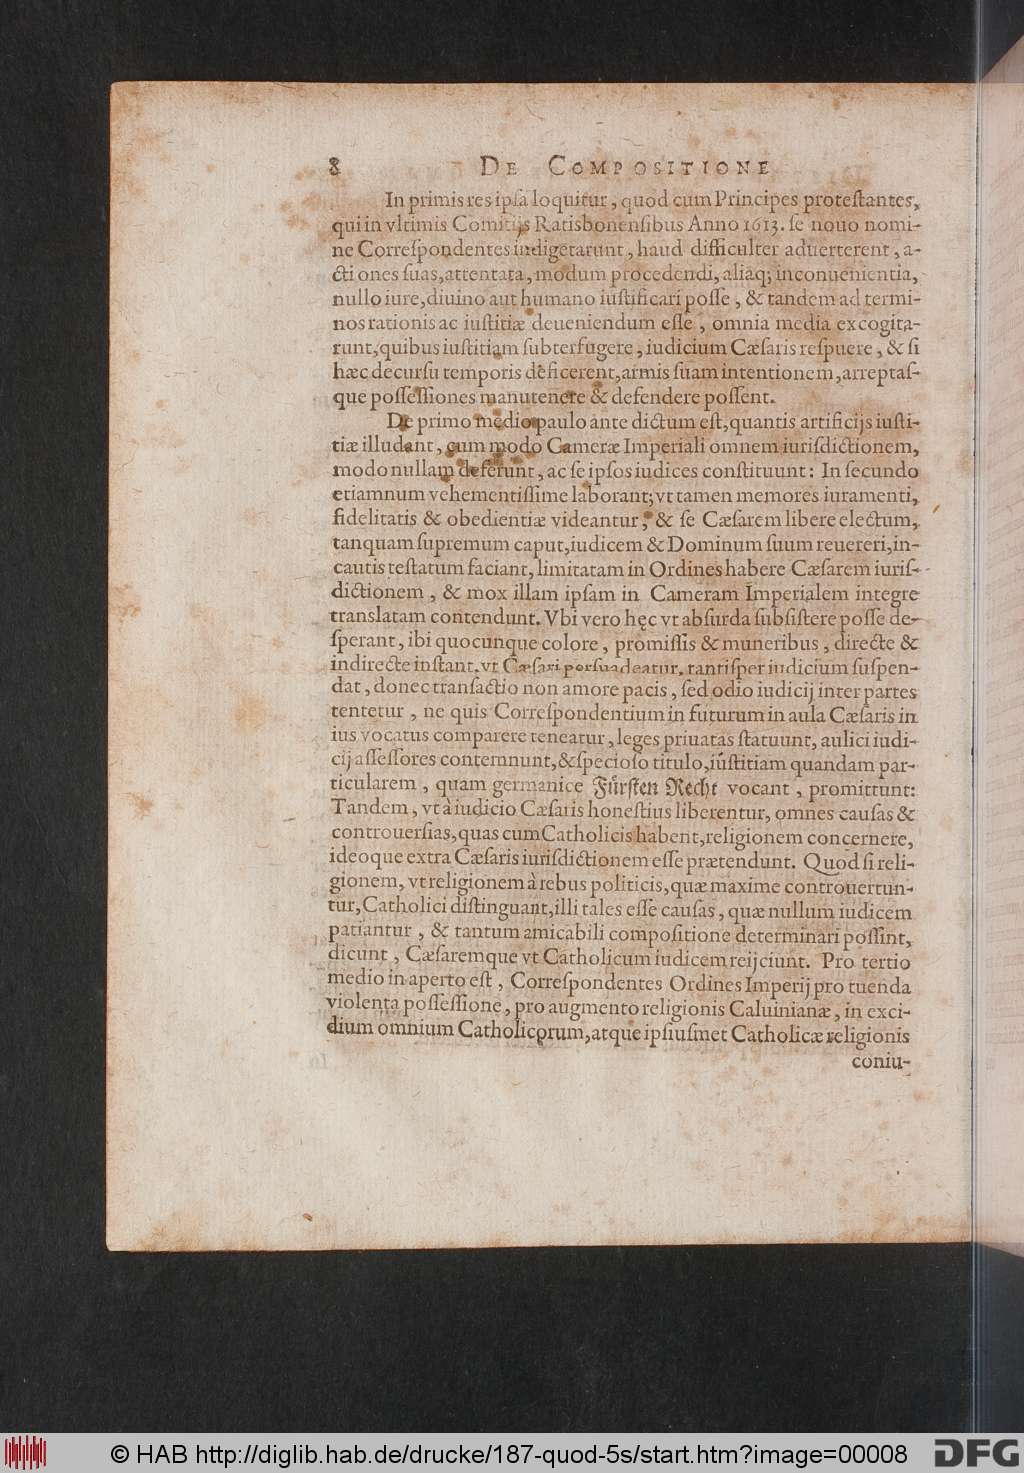 8 DE COMPOSITIONE
In primis res ipſa loquitur, quod cum Principes proteſtantes,
qui in vltimis Comitijs Ratisbonenſibus Anno 1613. ſe nouo nomi-
ne Correſpondentes indigetarunt, haud difficulter aduerterent, a-
ctiones ſuas, attentata, modum procedendi, aliaq; inconuenientia,
nullo iure, diuino aut humano iuſtificari poſſe, & tandem ad termi-
nos rationis ac iuſtitiæ deueniendum eſſe, omnia media excogita-
runt, quibus iuſtitiam ſubterfugere, iudicium Cæſaris reſpuere, & ſi
hæc decurſu temporis deficerent, armis ſuam intentionem, arreptaſ-
que poſſeſſiones manutenere & defendere poſſent.
De primo medio paulo ante dictum eſt, quantis artificijs iuſti-
tiæ illudant, cum modo Cameræ Imperiali omnem iuriſdictionem,
modo nullam deferunt, ac ſe ipſos iudices conſtituunt: In ſecundo
etiamnum vehementiſſime laborant; vt tamen memores iuramenti,
fidelitatis & obedientiæ videantur, & ſe Cæſarem libere electum,
tanquam ſupremum caput, iudicem & Dominum ſuum reuereri, in-
cautis teſtatum faciant, limitatam in Ordines habere Cæſarem iuriſ-
dictionem, & mox illam ipſam in Cameram Imperialem integre
translatam contendunt. Vbi vero hęc vt abſurda ſubſiſtere poſſe de-
ſperant, ibi quocunque colore, promiſſis & muneribus, directe &
indirecte inſtant, vt Cæſari perſuadeatur, tantiſper iudicium ſuſpen-
dat, donec tranſactio non amore pacis, ſed odio iudicij inter partes
tentetur, ne quis Correſpondentium in futurum in aula Cæſaris in
ius vocatus comparere teneatur, leges priuatas ſtatuunt, aulici iudi-
cij aſſeſſores contemnunt, & ſpecioſo titulo, iuſtitiam quandam par-
ticularem, quam germanice Fürſten Recht vocant, promittunt:
Tandem, vt à iudicio Cæſaris honeſtius liberentur, omnes cauſas &
controuerſias, quas cum Catholicis habent, religionem concernere,
ideoque extra Cæſaris iuriſdictionem eſſe prætendunt. Quod ſi reli-
gionem, vt religionem à rebus politicis, quæ maxime controuertun-
tur, Catholici diſtinguant, illi tales eſſe cauſas, quæ nullum iudicem
patiantur, & tantum amicabili compoſitione determinari poſſint,
dicunt, Cæſaremque vt Catholicum iudicem reijciunt. Pro tertio
medio in aperto eſt, Correſpondentes Ordines Imperij pro tuenda
violenta poſſeſſione, pro augmento religionis Caluinianæ, in exci-
dium omnium Catholicorum, atque ipſiuſmet Catholicæ religionis
coniu-
© HAB http://diglib.hab.de/drucke/187-quod-5s/start.htm?image=00008
DFG